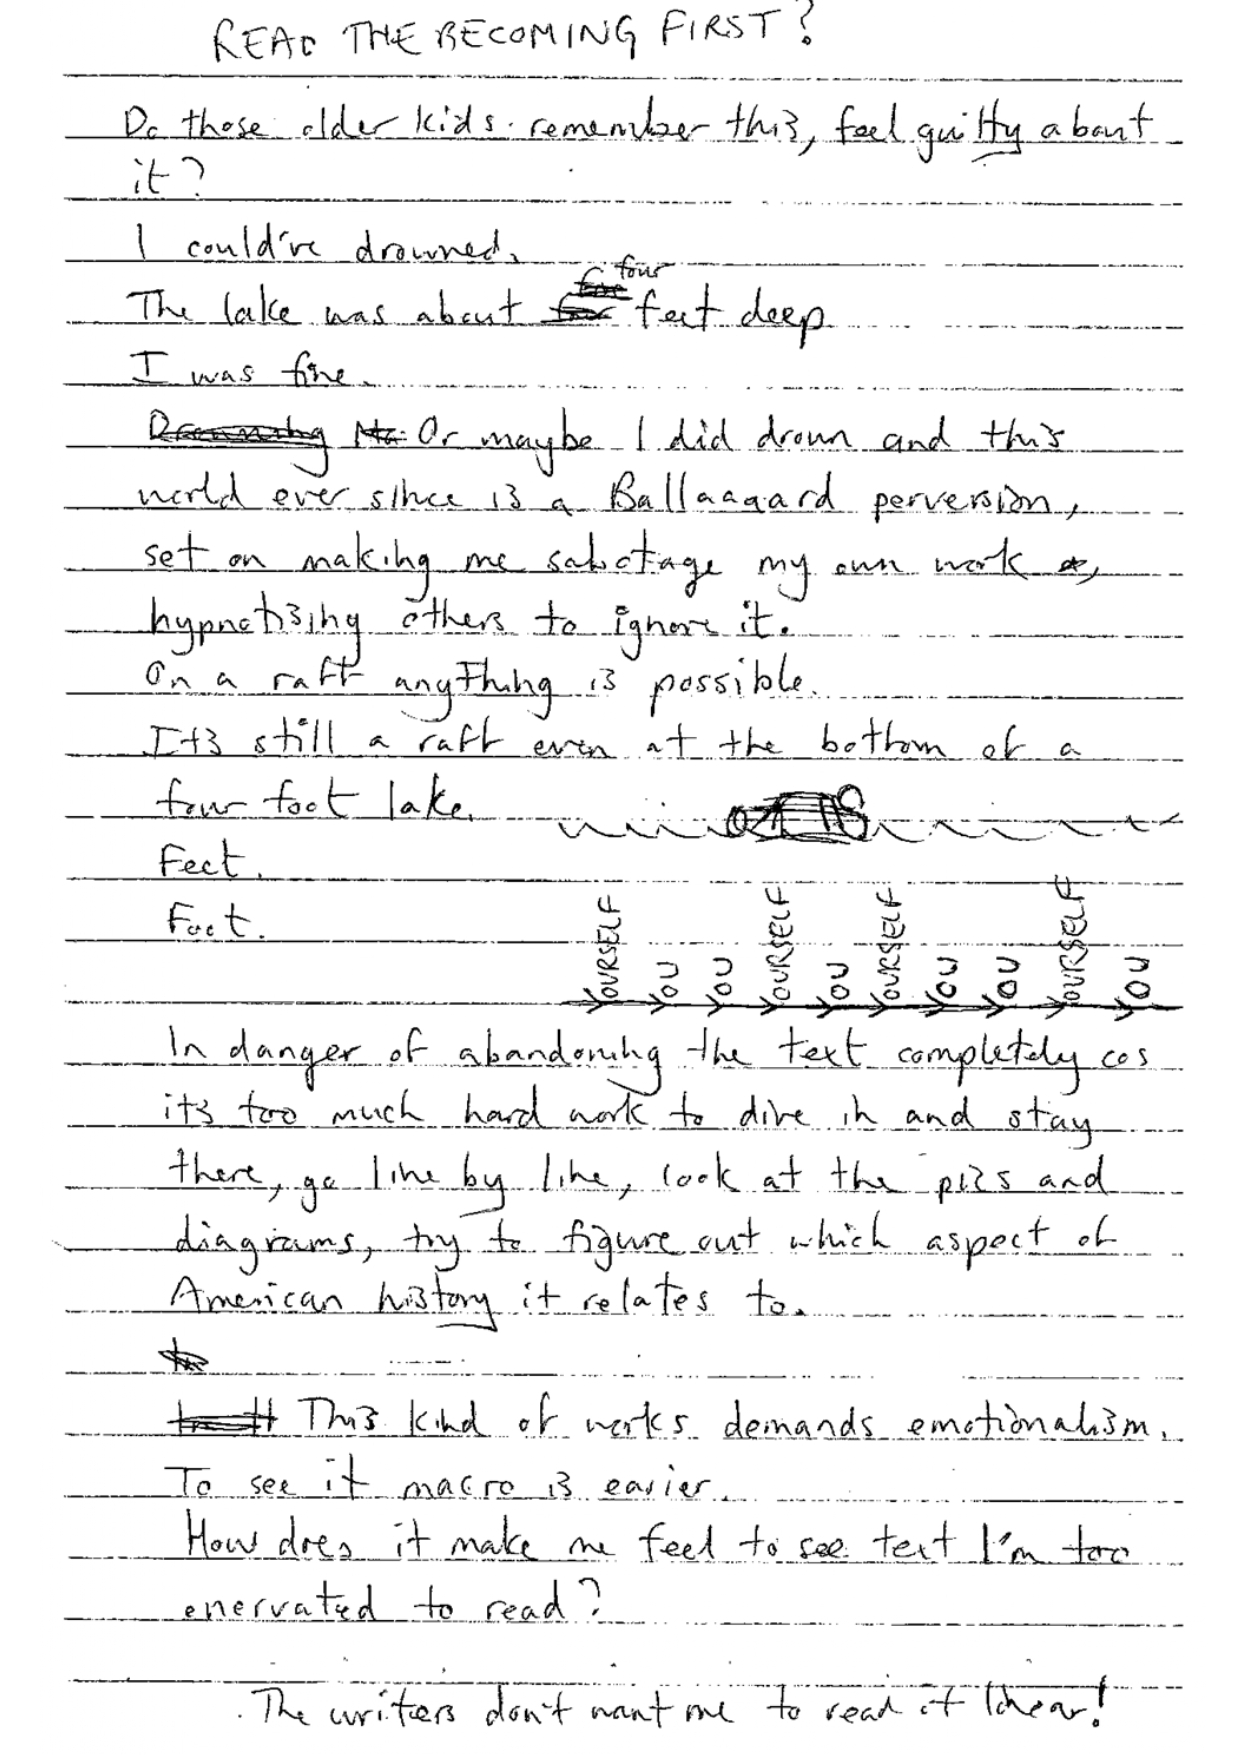 READ THE BECOMING FIRST?
Do those older kids remember this, feel guilty about
it?
I could've drowned.
four
The lake was about feet deep
I was fine.
Drowning Or maybe I did drown and this
world ever since is a Ballaaaard perversion,
set on making me sabotage my own work,
hypnotising others to ignore it.
On a raft anything is possible.
It's still a raft even at the bottom of a
four foot lake.
Feet.
Foot.
YOURSELF YOU YOU YOURSELF YOU YOURSELF YOU YOU YOURSELF YOU
In danger of abandoning the text completely cos
its too much hard work to dive in and stay
there, go line by line, look at the pics and
diagrams, try to figure out which aspect of
American history it relates to.
This kind of works demands emotionalism.
To see it macro is easier.
How does it make me feel to see text I'm too
enervated to read?
The writers don't want me to read it linear!